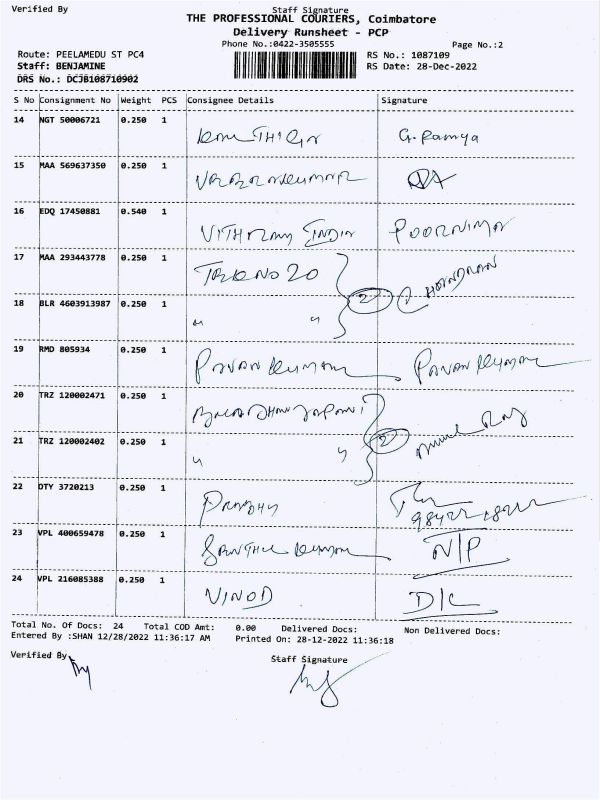 Verified By
Staff Signature
THE PROFESSIONAL COURIERS, Coimbatore
Delivery Runsheet - PCP
Phone No.:0422-3505555
Page No.:2
Route: PEELAMEDU ST PC4
RS No.: 1087109
Staff: BENJAMINE
RS Date: 28-Dec-2022
DRS No.: DCJB108710902
S No Consignment No Weight PCS Consignee Details Signature
14 NGT 50006721 0.250 1 G. Ramya
15 MAA 569637350 0.250 1
16 EDQ 17450881 0.540 1 India POORNIMA
17 MAA 293443778 0.250 1
2
18 BLR 4603913987 0.250 1 " "
19 RMD 805934 0.250 1 PAVAN KUMAR PAVAN KUMAR
20 TRZ 120002471 0.250 1
2
21 TRZ 120002402 0.250 1 " "
22 DTY 3720213 0.250 1 PRABHU
23 VPL 400659478 0.250 1 KUMAR N/P
24 VPL 216085388 0.250 1 VINOD D/C
Total No. Of Docs: 24 Total COD Amt: 0.00 Delivered Docs: Non Delivered Docs:
Entered By :SHAN 12/28/2022 11:36:17 AM Printed On: 28-12-2022 11:36:18
Verified By
Staff Signature